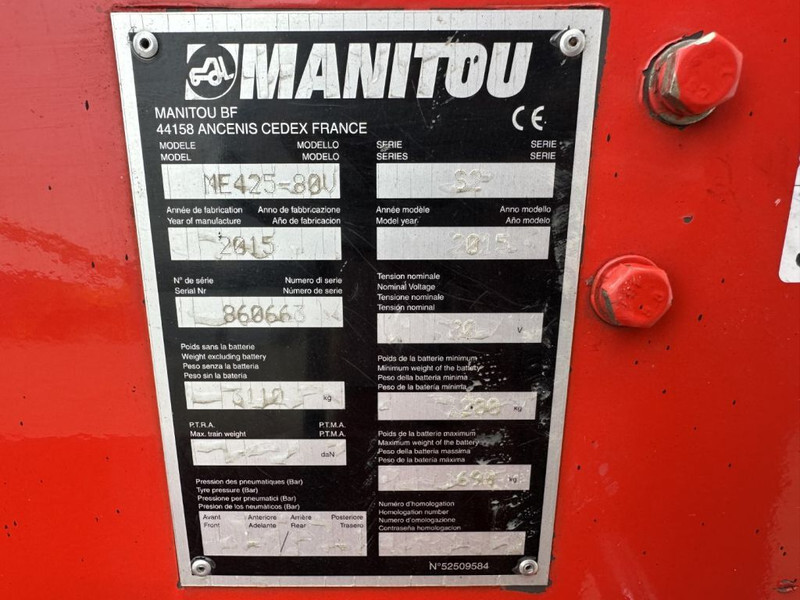 MANITOU
MANITOU BF
44158 ANCENIS CEDEX FRANCE
CE
MODELE MODELLO
MODEL MODELO
ME425-80V
SERIE SERIE
SERIES SERIE
S2
Année de fabrication Anno de fabbricazione
Year of manufacture Año de fabricacion
2015
Année modèle Anno modello
Model year Año modelo
2015
N° de série Numero di serie
Serial Nr Número de serie
860663
Tension nominale
Nominal Voltage
Tensione nominale
Tensión nominal
V
Poids sans la batterie
Weight excluding battery
Peso senza la bateria
Peso sin la bateria
kg
Poids de la batterie minimum
Minimum weight of the battery
Peso della bateria minima
Peso de la bateria minima
kg
P.T.R.A. P.T.M.A.
Max. train weight P.T.M.A.
daN
Poids de la batterie maximum
Maximum weight of the battery
Peso della bateria massima
Peso de la bateria máxima
kg
Pression des pneumatiques (Bar)
Tyre pressure (Bar)
Pressione per pneumatici (Bar)
Presion de los neumáticos (Bar)
Avant Anteriore Arrière Posteriore
Front Adelante Rear Traseru
/
Numéro d'homologation
Homologation number
Numero d'omologazione
Contraseña homologacion
N°52509584